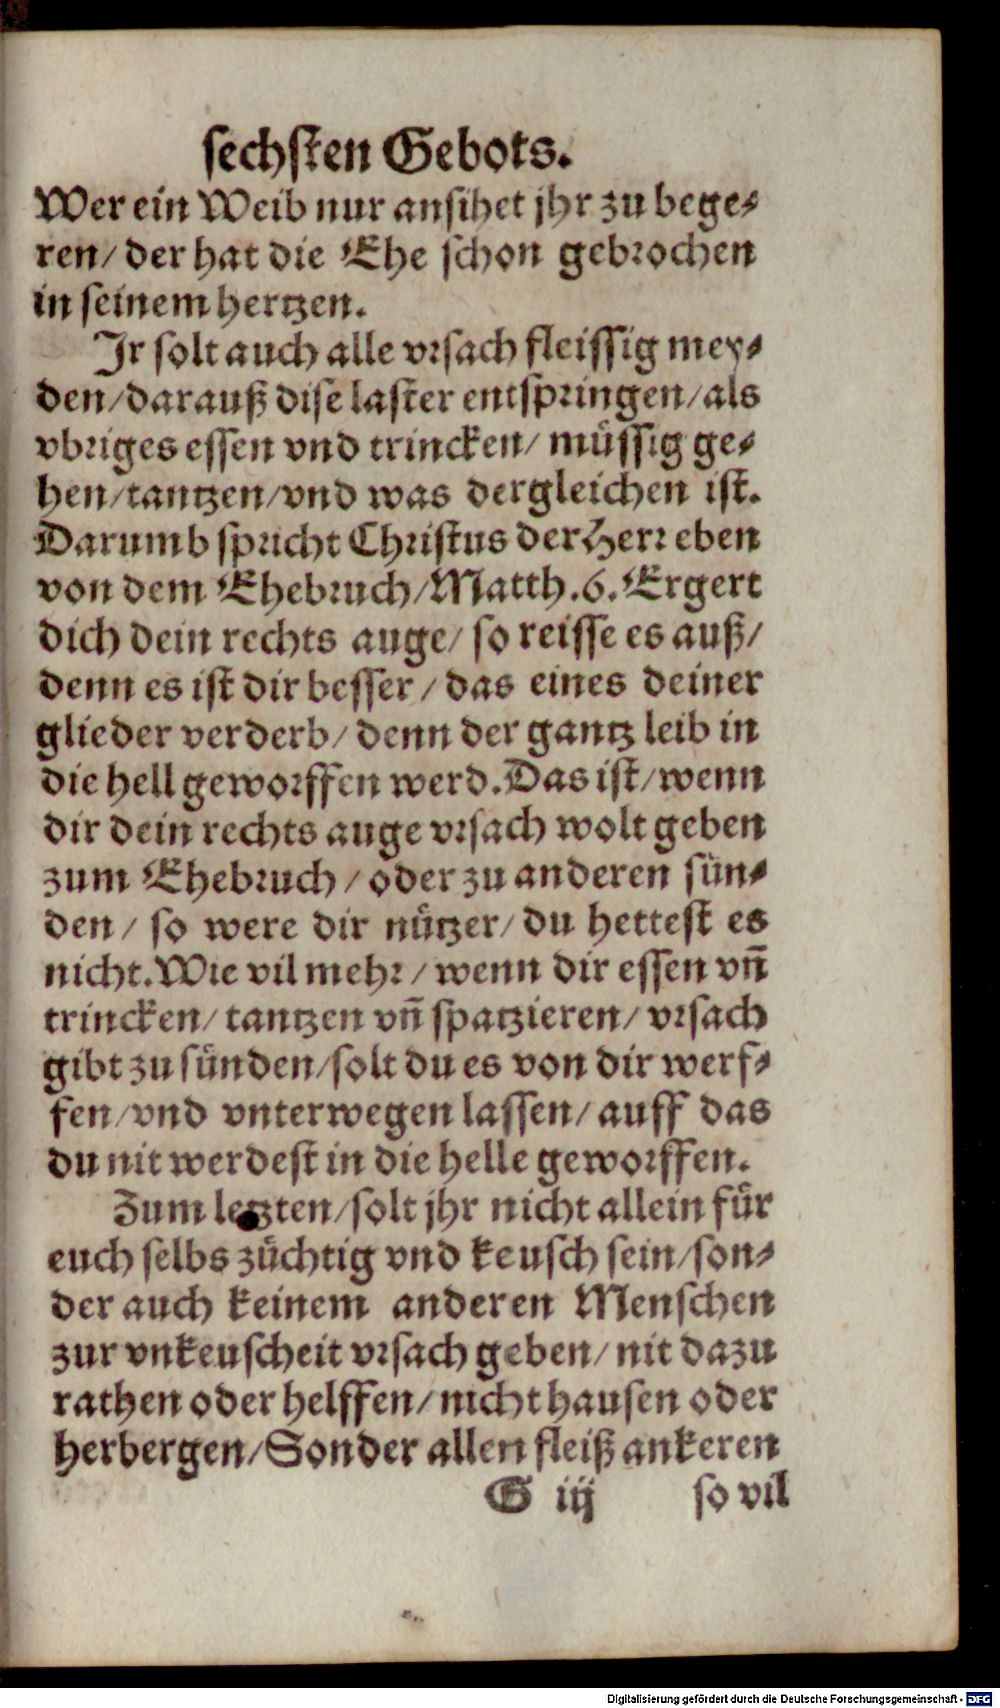 sechsten Gebots.
Wer ein Weib nur ansihet jhr zu bege-
ren/ der hat die Ehe schon gebrochen
in seinem hertzen.
Jr solt auch alle vrsach fleissig mey-
den/darauß dise laster entspringen/als
vbriges essen vnd trincken/ müssig ge-
hen/tantzen/vnd was dergleichen ist.
Darumb spricht Christus der Herr eben
von dem Ehebruch/Matth.6.Ergert
dich dein rechts auge/ so reisse es auß/
denn es ist dir besser/ das eines deiner
glieder verderb/ denn der gantz leib in
die hell geworffen werd.Das ist/wenn
dir dein rechts auge vrsach wolt geben
zum Ehebruch/ oder zu anderen sün-
den/ so were dir nützer/ du hettest es
nicht.Wie vil mehr/ wenn dir essen vñ
trincken/ tantzen vñ spatzieren/ vrsach
gibt zu sünden/solt du es von dir werf-
fen/vnd vnterwegen lassen/ auff das
du nit werdest in die helle geworffen.
Zum letzten/solt jhr nicht allein für
euch selbs züchtig vnd keusch sein/son-
der auch keinem anderen Menschen
zur vnkeuscheit vrsach geben/ nit dazu
rathen oder helffen/ nicht hausen oder
herbergen/Sonder allen fleiß ankeren
G iij so vil
Digitalisierung gefördert durch die Deutsche Forschungsgemeinschaft - DFG